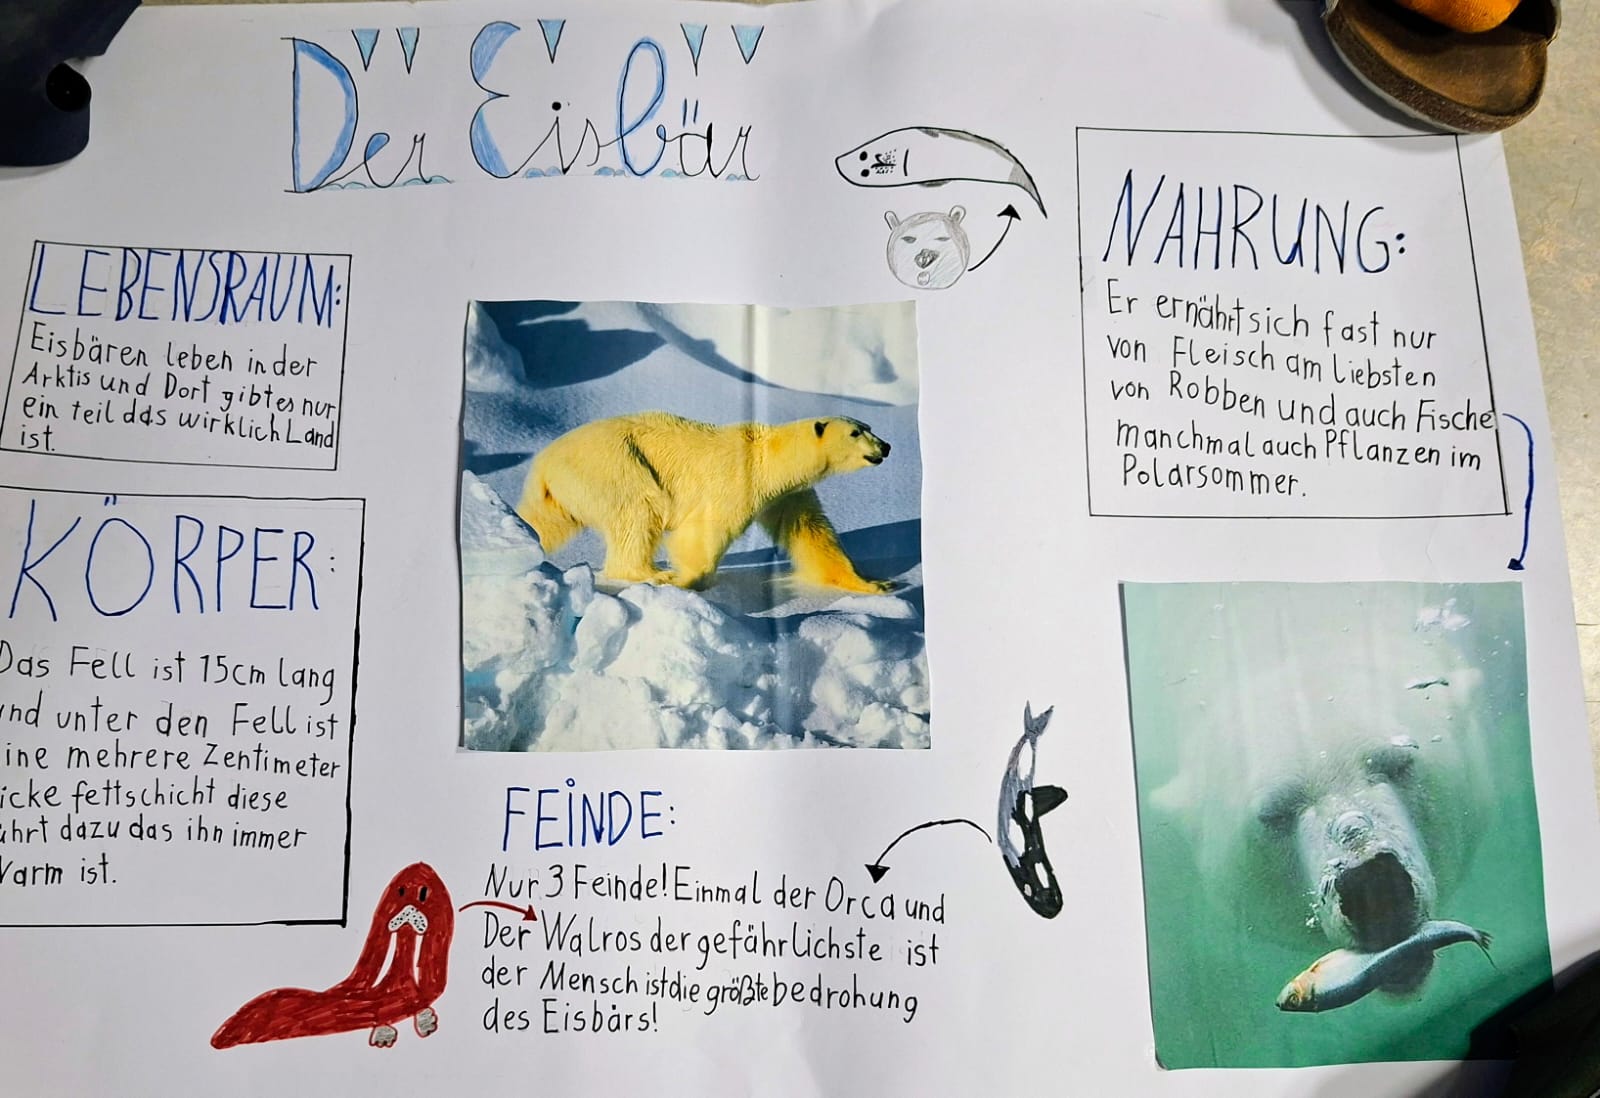 Der Eisbär
LEBENSRAUM:
Eisbären leben in der
Arktis und Dort gibt es nur
ein teil das wirklich Land
ist.
KÖRPER:
Das Fell ist 15cm lang
und unter den Fell ist
ine mehrere Zentimeter
icke fettschicht diese
ührt dazu das ihn immer
Warm ist.
FEINDE:
Nur 3 Feinde! Einmal der Orca und
Der Walros der gefährlichste ist
der Mensch ist die größte bedrohung
des Eisbärs!
NAHRUNG:
Er ernährt sich fast nur
von Fleisch am liebsten
von Robben und auch Fische
manchmal auch Pflanzen im
Polarsommer.